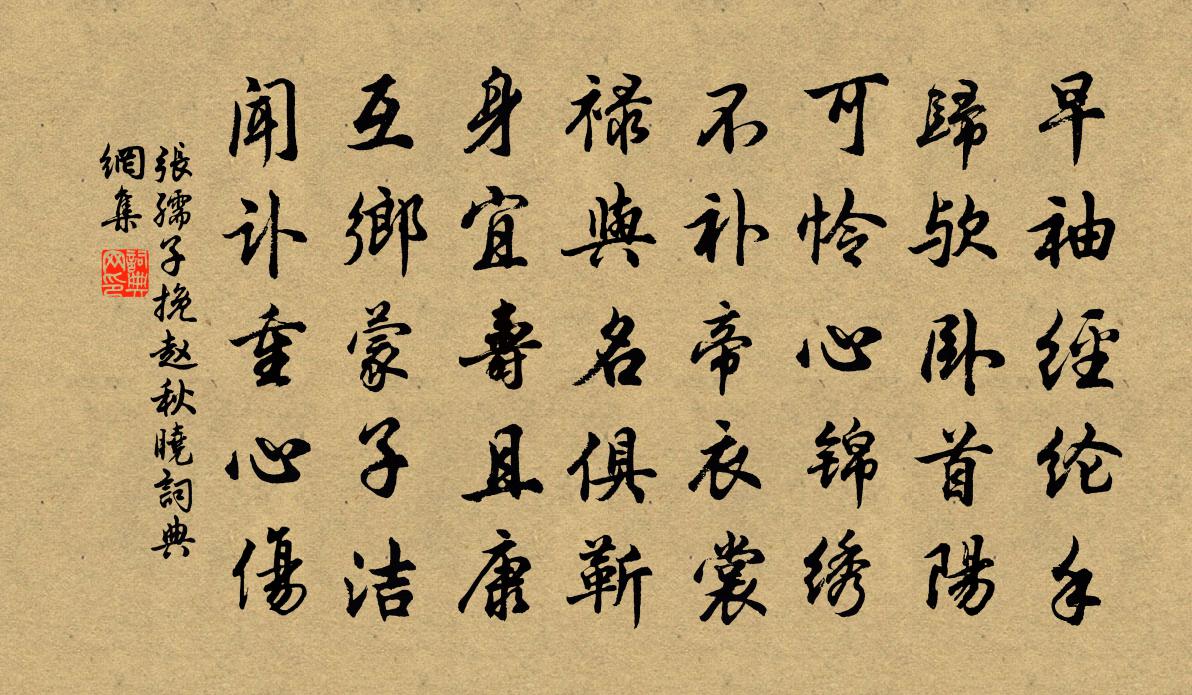 早袖經纶手
歸欤卧首陽
可怜心锦绣
不补帝衣裳
禄與名俱蕲
身宜壽且康
互鄉蒙子洁
闻讣重心傷
張孺子挽赵秋曉詞典
網集
詞典
网印